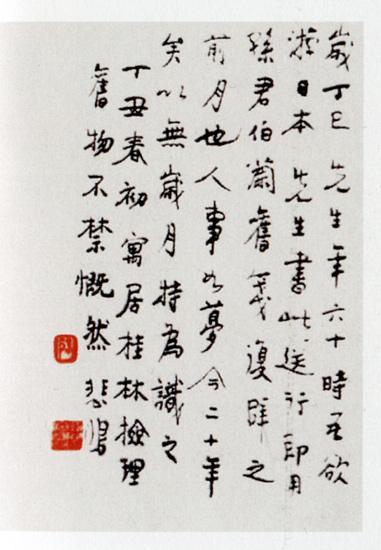 歲丁巳 先生年六十時吾欲
游日本 先生書此送行即用
孫君伯蘭舊箋復辟之
前月也人事如夢今二十年
矣以無歲月特為識之
丁丑春初寓居桂林撿理
舊物不禁慨然悲鴻